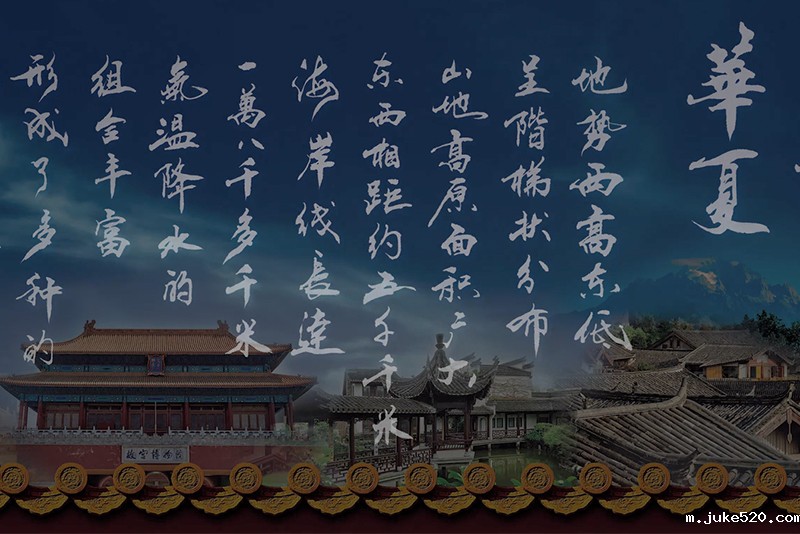 華夏
地势西高东低
呈階梯状分布
山地高原面积广大
东西相距约五千千米
海岸线長達
一萬八千多千米
氣温降水的
组合丰富
形成了多种的
故宫博物院
m.juke520.com